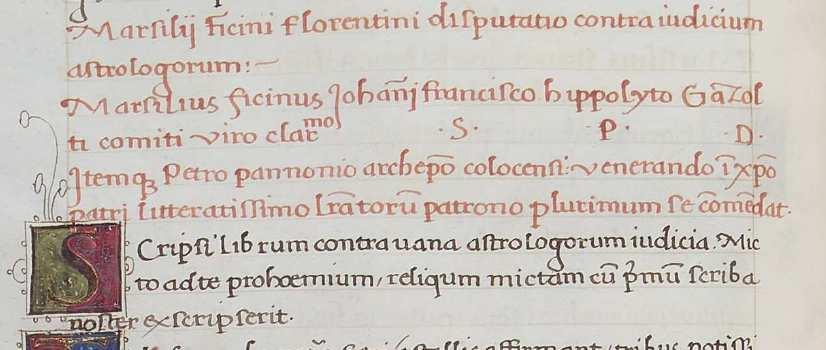 Marsilij ficini florentini disputatio contra iudicium
astrologorum:~
Marsilius ficinus Johanj francisco hippolyto Gazol
ti comiti viro clarmo ·S· P· D·
Jtemq Petro pannonio archepo colocensi: venerando i xpo
patri litteratissimo lratoru patrono plurimum se comedat.
Scripsi librum contra uana astrologorum iudicia. Mic
to ad te prohoemium, reliqum mictam cu pmu scriba
noster exscripserit.